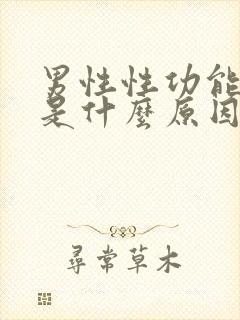 男性性功能
是什麼原因
尋常草木